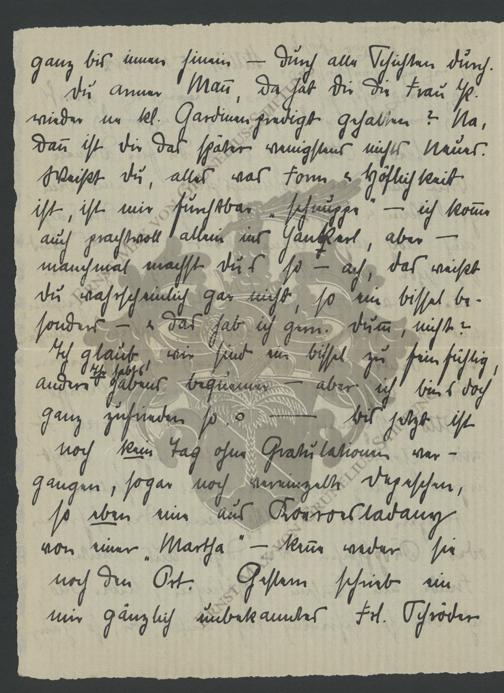 ganz bis innen hinein — durch alle Schichten durch.
Du armer Mañ, da hat dir die Frau
wieder ne kl. Gardinenpredigt gehalten? Na,
dañ ist dir das später wenigstens nichts Neues.
Weißt Du, alles was Form & Höflichkeit
ist, ist mir furchtbar „schnuppe" — ich kome
auch prachtvoll allein ins aber —
manchmal machst Du's so — ach, das weißt
Du wahrscheinlich gar nicht, so ein bissel be-
sonders — & das hab ich gern. Dum, nicht?
Ich glaub, wir sind ein bissel zu feinfühlig,
andere habens bequemer — aber ich bin's doch
ganz zufrieden so. — bis jetzt ist
noch kein Tag ohne Gratulationen ver-
gangen, sogar noch vereinzelte Depeschen,
so eben eine aus
von einer „Martha" — keñe weder sie
noch den Ort. Gestern schrieb ein
mir gänzlich unbekanntes Frl. Schröder